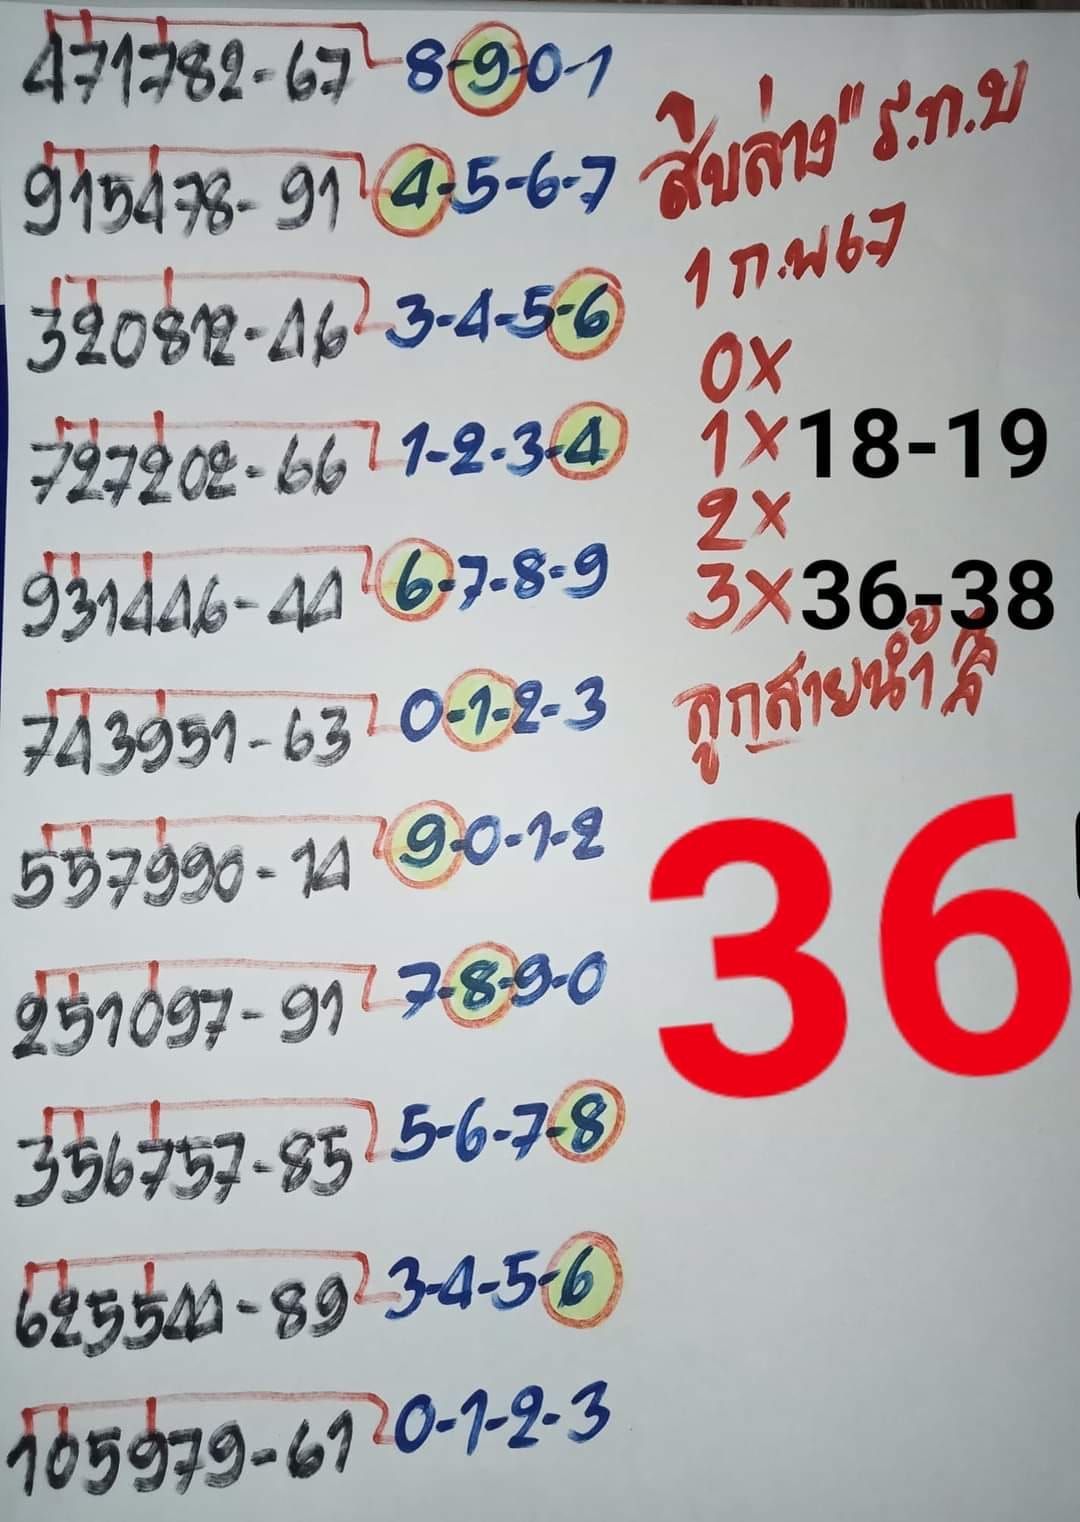 471782-67 8-9-0-1
915478-91 4-5-6-7
320812-46 3-4-5-6
727202-66 1-2-3-4
931446-44 6-7-8-9
743951-63 0-1-2-3
557990-14 9-0-1-2
251097-91 7-8-9-0
356757-85 5-6-7-8
625544-89 3-4-5-6
105979-61 0-1-2-3
สิบล่าง" ร.ท.บ
1 ก.พ 67
0X
1X 18-19
2X
3X 36-38
ลูกสายน้ำ ลี
36